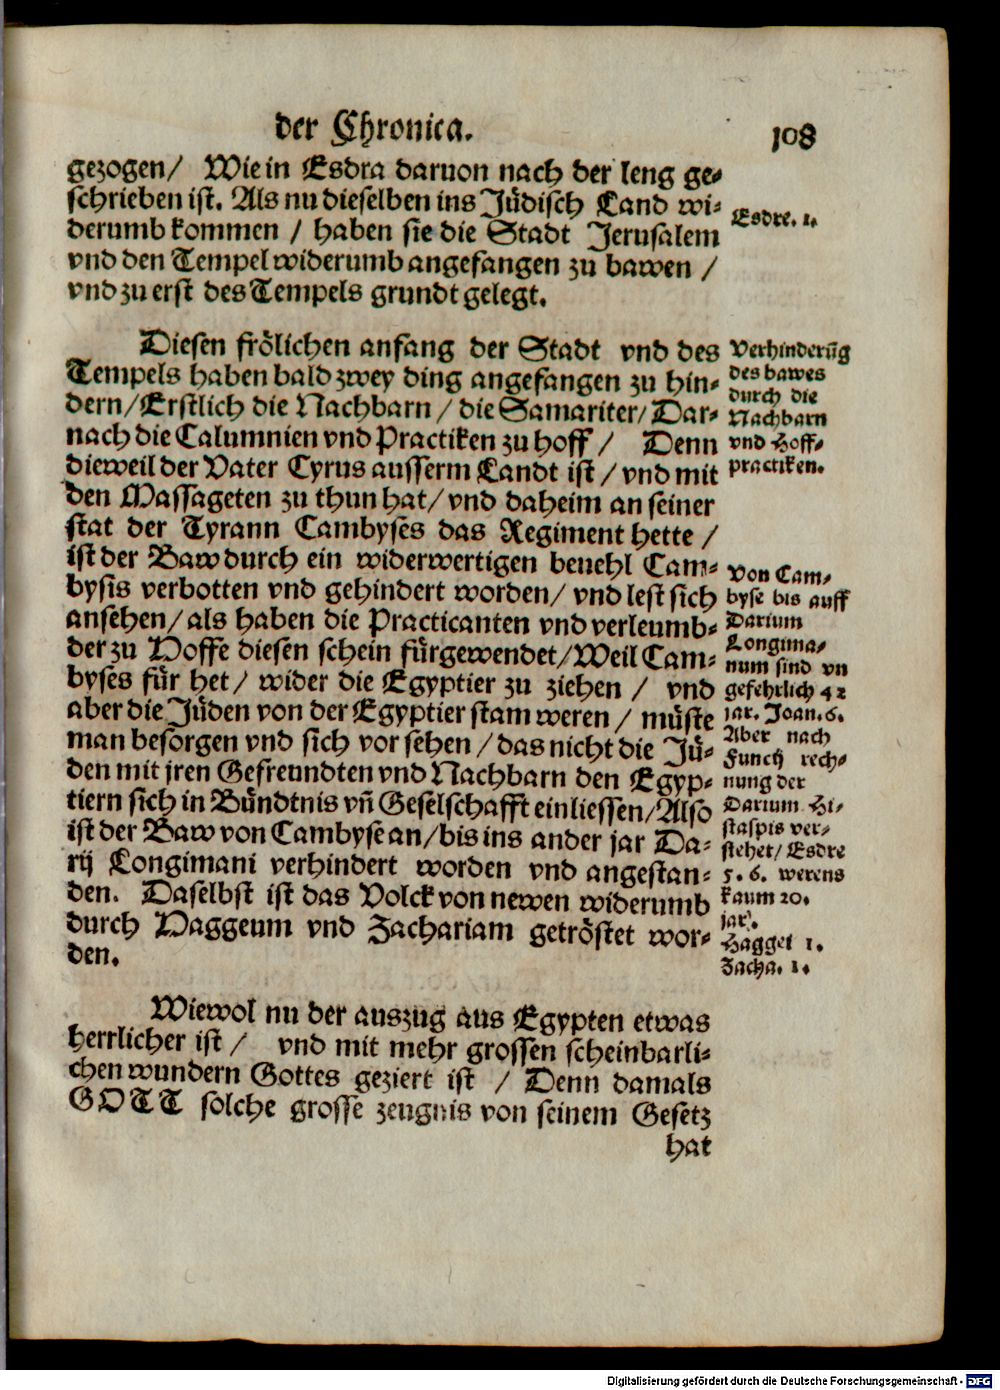 der Chronica.
108
gezogen/ Wie in Esdra daruon nach der leng ge-
schrieben ist. Als nu dieselben ins Jüdisch Land wi-
derumb kommen / haben sie die Stadt Jerusalem
vnd den Tempel widerumb angefangen zu bawen /
vnd zu erst des Tempels grundt gelegt.
Esdre. 1.
Diesen frölichen anfang der Stadt vnd des
Tempels haben bald zwey ding angefangen zu hin-
dern/Erstlich die Nachbarn / die Samariter/ Dar-
nach die Calumnien vnd Practiken zu hoff / Denn
dieweil der Vater Cyrus ausserm Landt ist / vnd mit
den Massageten zu thun hat/ vnd daheim an seiner
stat der Tyrann Cambyses das Regiment hette /
ist der Baw durch ein widerwertigen beuehl Cam-
bysis verbotten vnd gehindert worden/ vnd lest sich
ansehen/ als haben die Practicanten vnd verleumb-
der zu Hoffe diesen schein fürgewendet/Weil Cam-
byses für het/ wider die Egyptier zu ziehen / vnd
aber die Jüden von der Egyptier stam weren / müste
man besorgen vnd sich vor sehen / das nicht die Jü-
den mit jren Gefreundten vnd Nachbarn den Egyp-
tiern sich in Bündtnis vñ Geselschafft einliessen/Also
ist der Baw von Cambyse an/bis ins ander jar Da-
rij Longimani verhindert worden vnd angestan-
den. Daselbst ist das Volck von newen widerumb
durch Haggeum vnd Zachariam getröstet wor-
den.
Verhinderũg
des bawes
durch die
Nachbarn
vnd Hoff-
practiken.
Von Cam-
byse bis auff
Darium
Longima-
num sind vn
gefehrlich 42
jar. Joan. 6.
Aber nach
Funcij rech-
nung der
Darium Hi-
staspis ver-
stehet/ Esdre
5. 6. werens
kaum 20.
jar.
Haggei 1.
Zacha. 1.
Wiewol nu der auszug aus Egypten etwas
herrlicher ist / vnd mit mehr grossen scheinbarli-
chen wundern Gottes geziert ist / Denn damals
GOTT solche grosse zeugnis von seinem Gesetz
hat
Digitalisierung gefördert durch die Deutsche Forschungsgemeinschaft - DFG